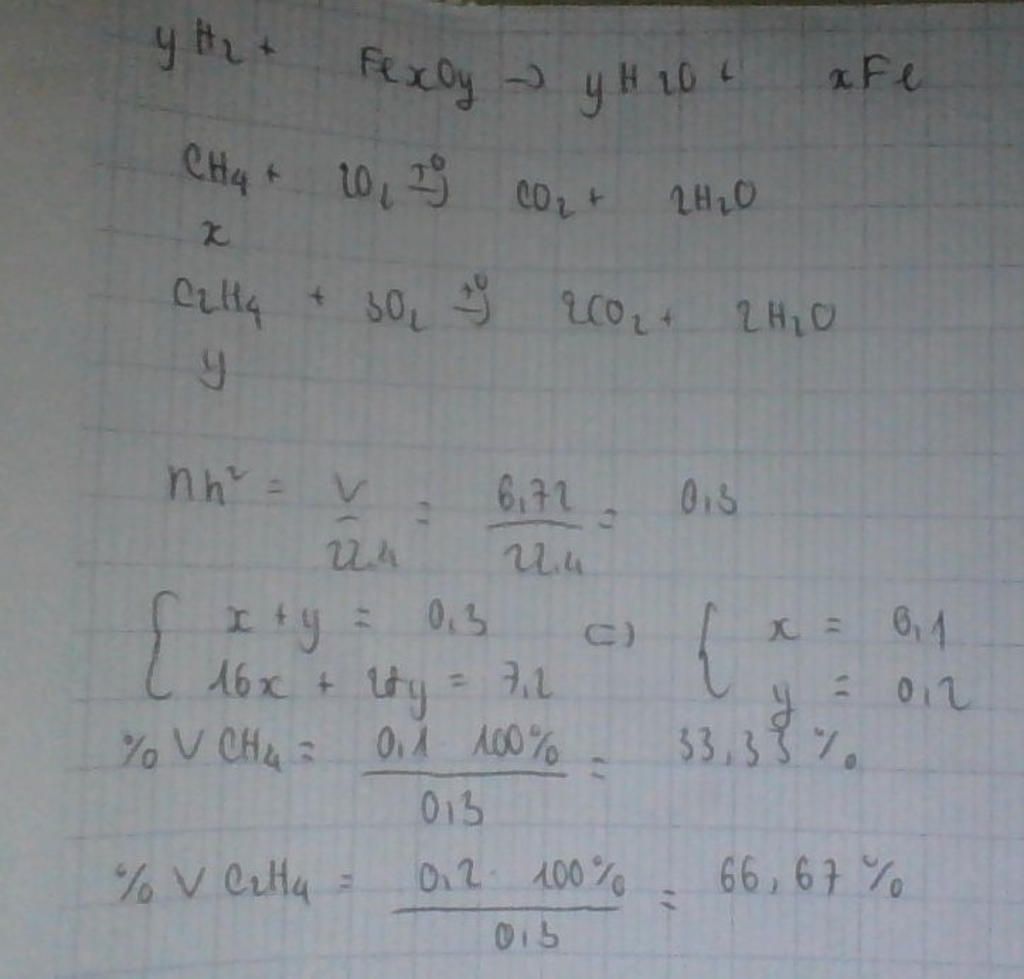 yH2 + FexOy → yH2O + xFe
CH4 + 2O2 →t° CO2 + 2H2O
x
C2H4 + 3O2 →t° 2CO2 + 2H2O
y
nh² = V/22.4 = 6,72/22.4 = 0,3
{ x + y = 0,3 <=> { x = 0,1
16x + 28y = 7,2 y = 0,2
% V CH4 = 0,1 100%/0,3 = 33,33 %
% V C2H4 = 0,2. 100%/0,3 = 66,67 %